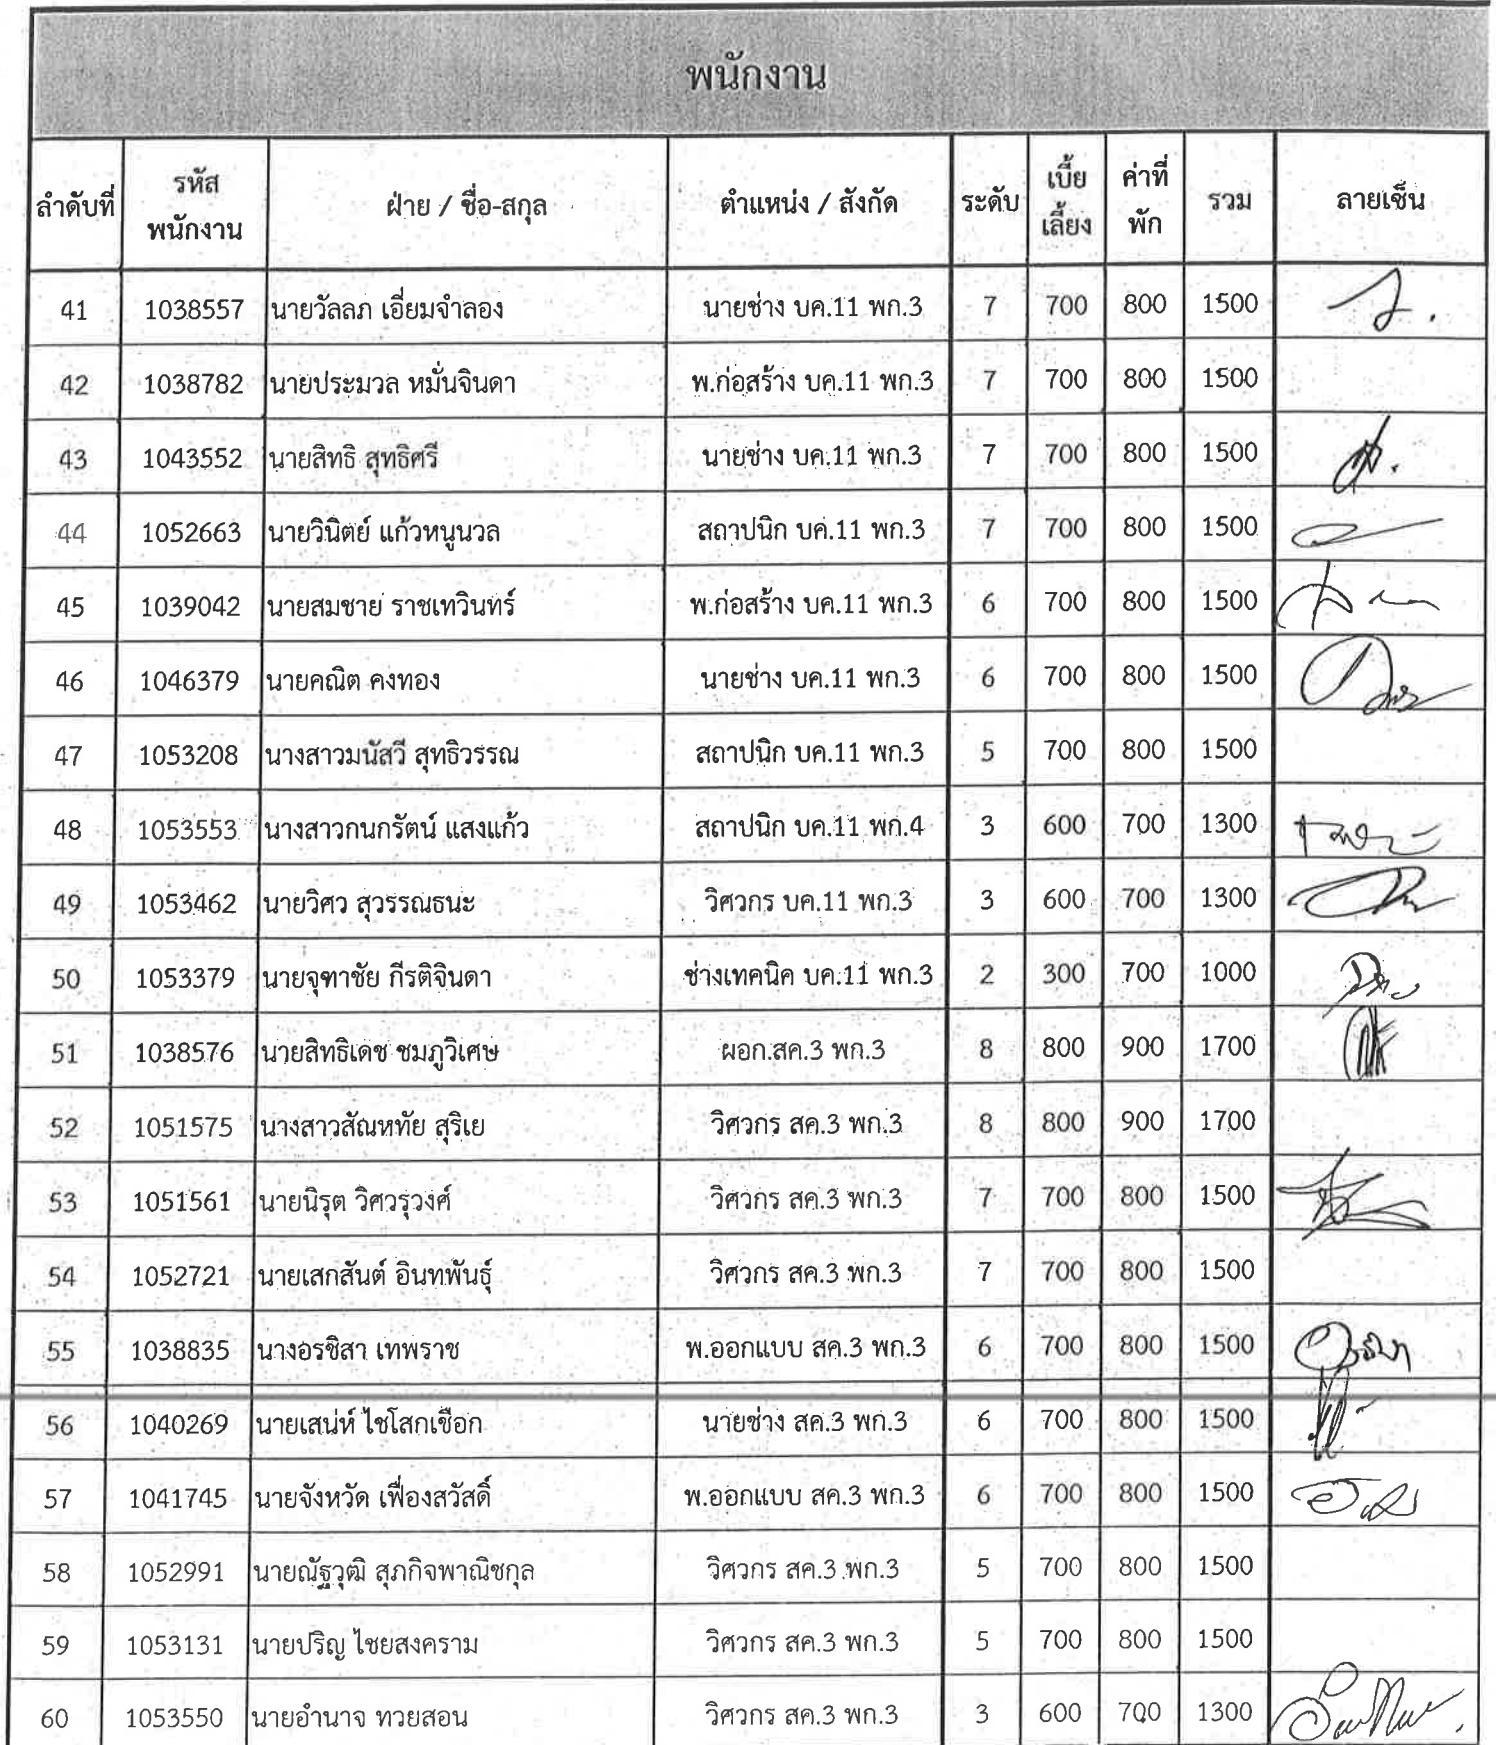 พนักงาน
ลำดับที่ รหัสพนักงาน ฝ่าย / ชื่อ-สกุล ตำแหน่ง / สังกัด ระดับ เบี้ยเลี้ยง ค่าที่พัก รวม ลายเซ็น
41 1038557 นายวัลลภ เอี่ยมจำลอง นายช่าง บค.11 พก.3 7 700 800 1500
42 1038782 นายประมวล หมั่นจินดา พ.ก่อสร้าง บค.11 พก.3 7 700 800 1500
43 1043552 นายสิทธิ สุทธิศรี นายช่าง บค.11 พก.3 7 700 800 1500
44 1052663 นายวินิตย์ แก้วหนูนวล สถาปนิก บค.11 พก.3 7 700 800 1500
45 1039042 นายสมชาย ราชเทวินทร์ พ.ก่อสร้าง บค.11 พก.3 6 700 800 1500
46 1046379 นายคณิต คงทอง นายช่าง บค.11 พก.3 6 700 800 1500
47 1053208 นางสาวมนัสวี สุทธิวรรณ สถาปนิก บค.11 พก.3 5 700 800 1500
48 1053553 นางสาวกนกรัตน์ แสงแก้ว สถาปนิก บค.11 พก.4 3 600 700 1300
49 1053462 นายวิศว สุวรรณธนะ วิศวกร บค.11 พก.3 3 600 700 1300
50 1053379 นายจุฑาชัย กีรติจินดา ช่างเทคนิค บค.11 พก.3 2 300 700 1000
51 1038576 นายสิทธิเดช ชมภูวิเศษ ผอก.สค.3 พก.3 8 800 900 1700
52 1051575 นางสาวสัณหทัย สุริเย วิศวกร สค.3 พก.3 8 800 900 1700
53 1051561 นายนิรุต วิศวรุวงศ์ วิศวกร สค.3 พก.3 7 700 800 1500
54 1052721 นายเสกสันต์ อินทพันธุ์ วิศวกร สค.3 พก.3 7 700 800 1500
55 1038835 นางอรชิสา เทพราช พ.ออกแบบ สค.3 พก.3 6 700 800 1500
56 1040269 นายเสน่ห์ ไชโสกเชือก นายช่าง สค.3 พก.3 6 700 800 1500
57 1041745 นายจังหวัด เฟื่องสวัสดิ์ พ.ออกแบบ สค.3 พก.3 6 700 800 1500
58 1052991 นายณัฐวุฒิ สุภกิจพาณิชกุล วิศวกร สค.3 พก.3 5 700 800 1500
59 1053131 นายปริญ ไชยสงคราม วิศวกร สค.3 พก.3 5 700 800 1500
60 1053550 นายอำนาจ ทวยสอน วิศวกร สค.3 พก.3 3 600 700 1300